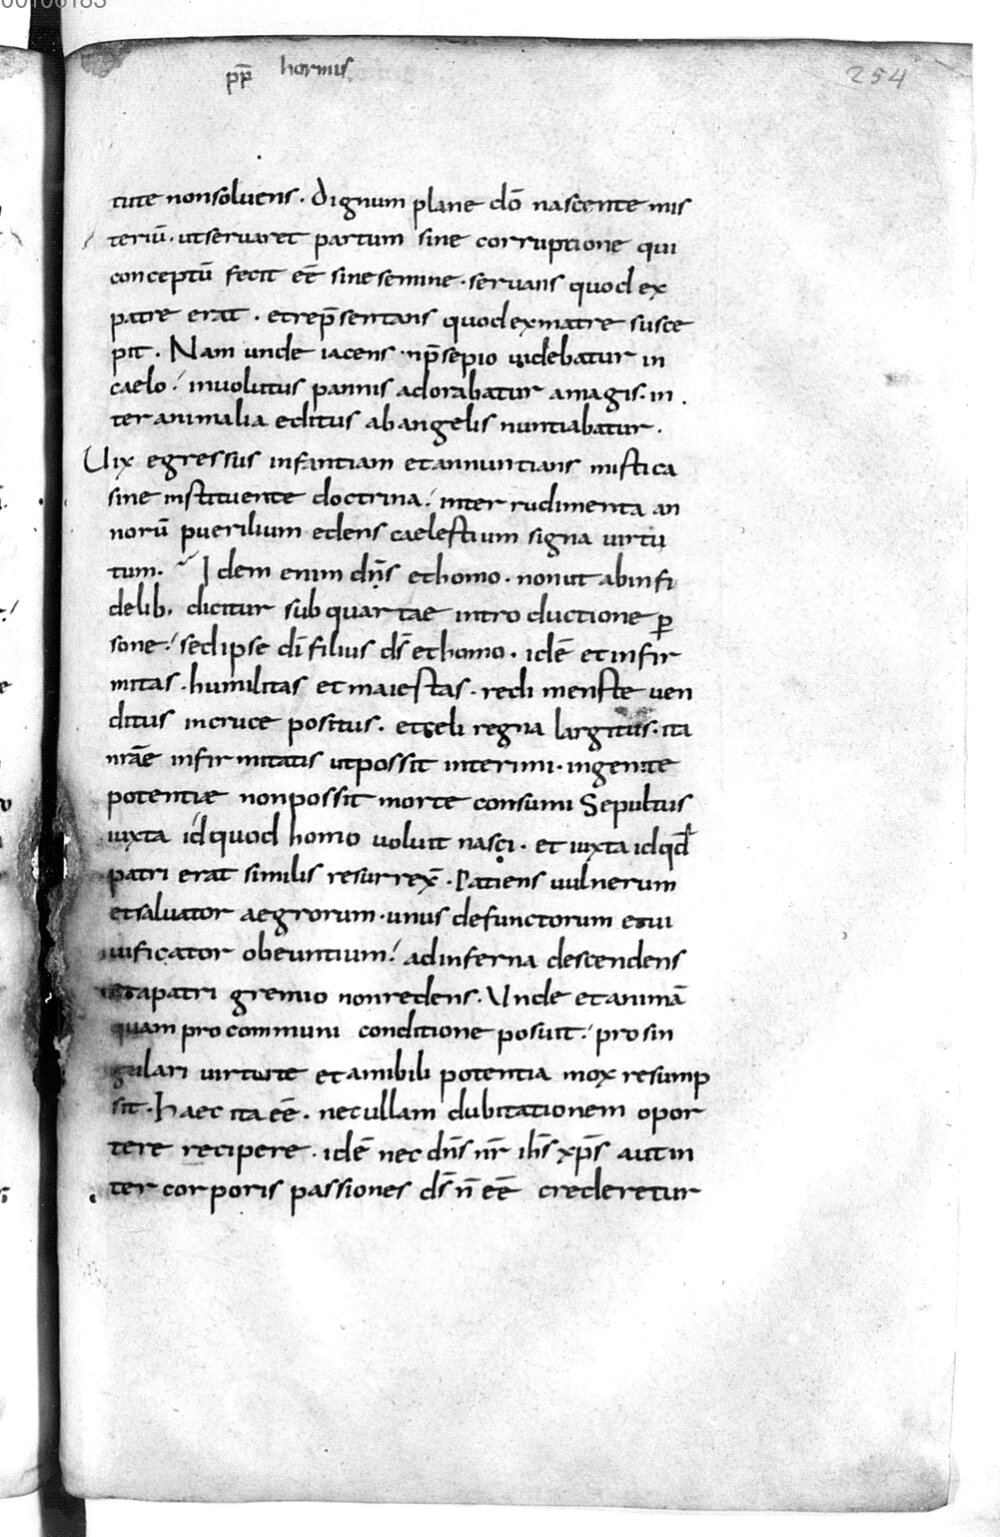 00100183
pp̄ hormis
254
tute non soluens. dignum plane dō nascente mis
teriū. ut seruaret partum sine corruptione qui
conceptū fecit eē sine semine. seruans quod ex
patre erat. et rep̄sentans quod ex matre susce
pit. Nam unde iacens in p̄sepio uidebatur in
caelo. inuolutus pannis adorabatur a magis. in
ter animalia editus ab angelis nuntiabatur.
Uix egressus infantiam et annuntians mistica
sine instituente doctrina. inter rudimenta an
norū puerilium edens caelestium signa uirtu
tum. Idem enim dn̄s et homo. non ut ab infi
delib. dicitur sub quartae introductione p̱
sone. sed ipse dī filius ds̄ et homo. idē et infir
mitas. humilitas et maiestas. redimens te uen
ditus in cruce positus. et celi regna largitus. ita
nrāe infirmitatis ut possit interimi. ingenite
potentiæ non possit morte consumi Sepultus
iuxta id quod homo uoluit nasci. et iuxta id qd̄
patri erat similis resurrex̄. Patiens uulnerum
et saluator aegrorum. unus defunctorum et ui
uificator obeuntium. ad inferna descendens
et a patri gremio non redens. Unde et animā
quam pro communi conditione posuit. pro sin
gulari uirtute et amibili potentia mox resump
sit. haec ita eē. nec ullam dubitationem opor
tere recipere. idē nec dn̄s nr̄ ihs̄ xp̄s aut in
ter corporis passiones ds̄ n̄ eē crederetur